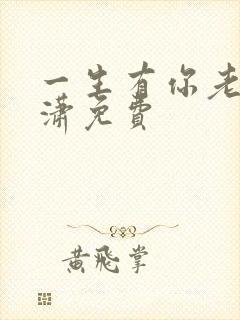 一生有你老
潇免费
黄飞掌